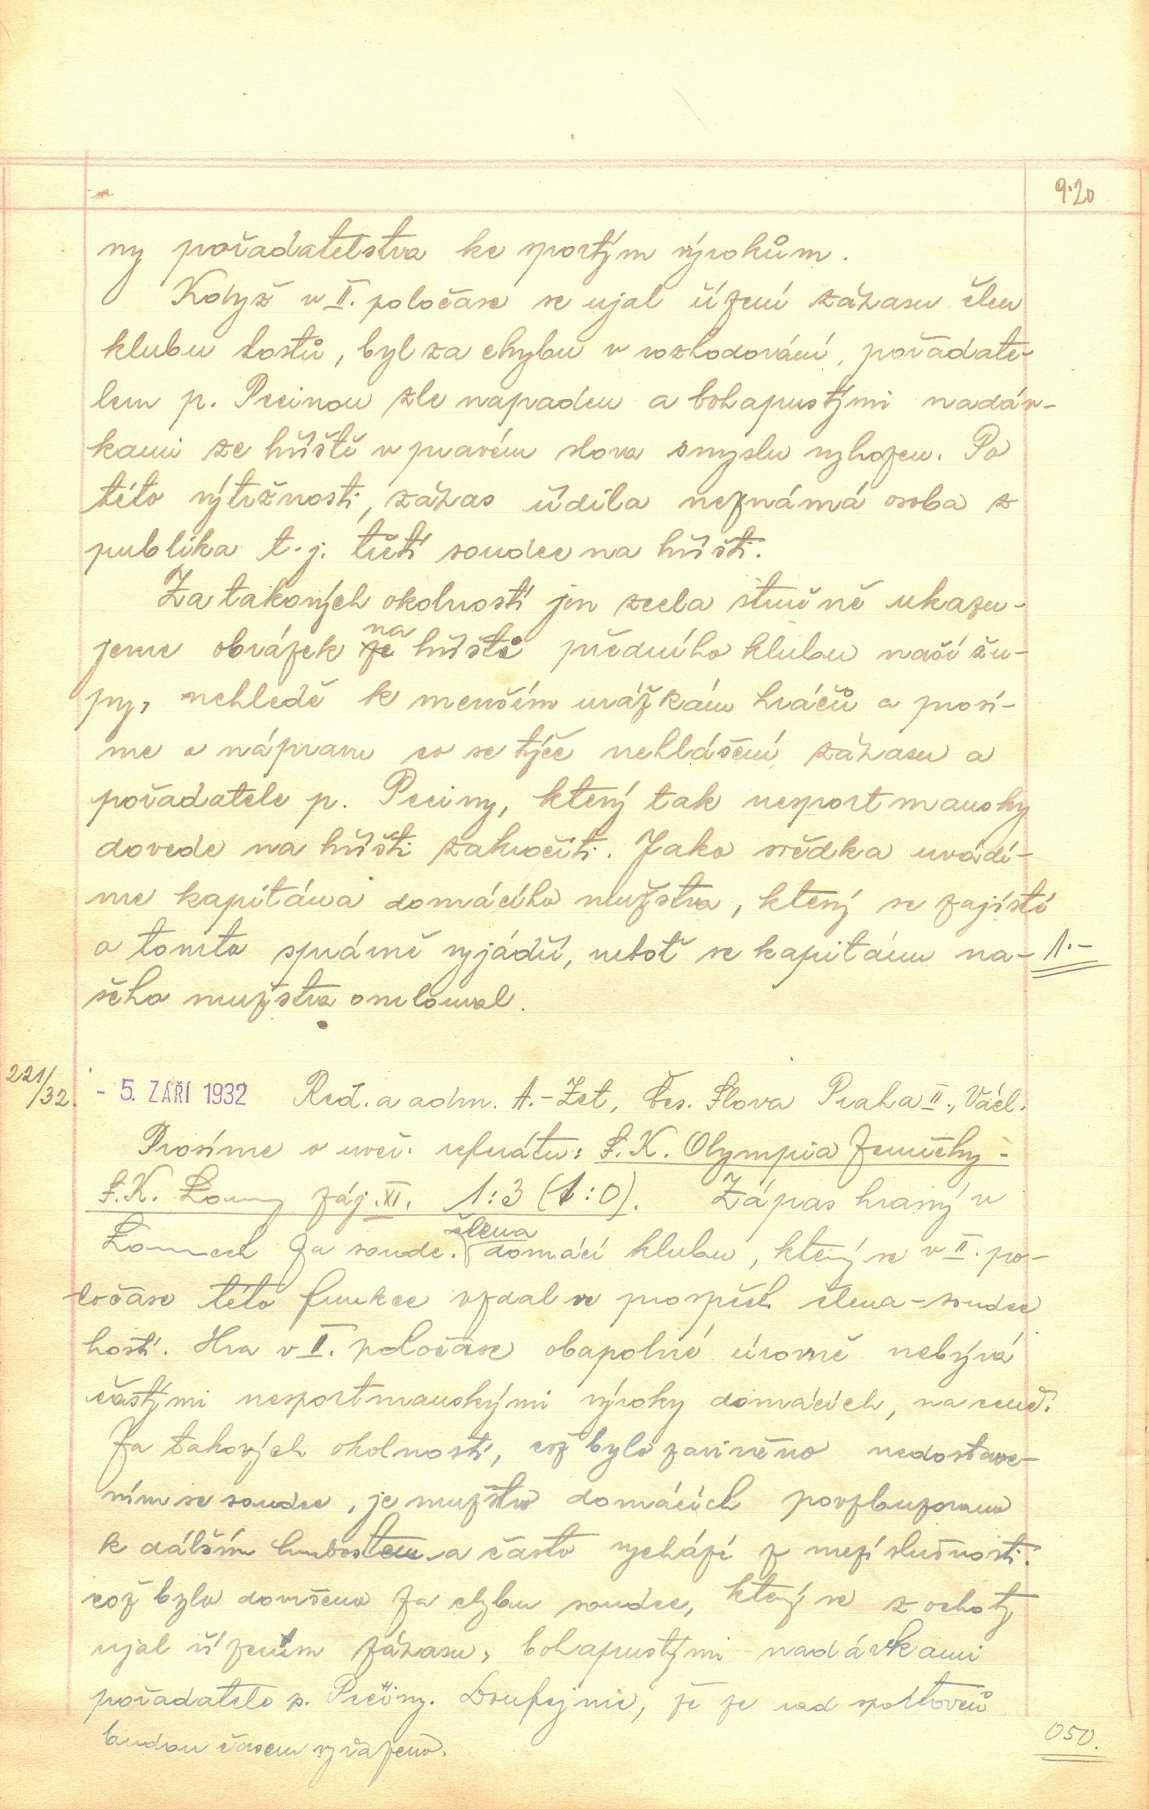 9.20
ny pořadatelstva ke sportým výrokům.
Když v II. poločase se ujal řízení zápasu člen
klubu hostů, byl za chybu v rozhodování, pořadate-
lem p. Pecinou zle napaden a bohapustými nadáv-
kami ze hřiště v pravém slova smyslu vyhozen. Po
této výtržnosti, zápas řídila neznámá osoba z
publika t. j. třetí soudce na hřišti.
Za takových okolností jen zcela stručně ukazu-
jeme obrázek ze na hřiště předního klubu naší žu-
py, nehledě k menším urážkám hráčů a prosí-
me o nápravu co se týče nehlášení zápasu a
pořadatele p. Peciny, který tak nesportmansky
dovede na hřišti zakročiti. Jako svědka uvádí-
me kapitána domácího mužstva, který se zajisté
o tomto správně vyjádří, neboť se kapitánu na- 1.-
šeho mužstva omlouval.
221/32. - 5. ZÁŘÍ 1932 Red. a adm. A.-Zet, Čes. Slova Praha II., Václ.
Prosíme o uveř. referátu: S.K. Olympia Zeměchy -
S.K. Louny záj. XI. 1:3 (1:0). Zápas hraný v
Lounech za soudc. člena domácí klubu, který se v II. po-
ločase této funkce vzdal ve prospěch člena-soudce
hostí. Hra v II. poločase obapolné úrovně nebývá
častými nesportmanskými výroky domácích, na
Za takových okolností, což bylo zaviněno nedostave-
ním se soudce, je mužstvo domácích
k dalším hrubostem a často vychází z mezí slušnosti.
což bylo za chybu soudce, který se z ochoty
ujal řízením zápasu, bohapustými nadávkami
pořadatele p. Pečiny. Doufejme, že ze řad sportovců
budou časem vyřazeno.
050.